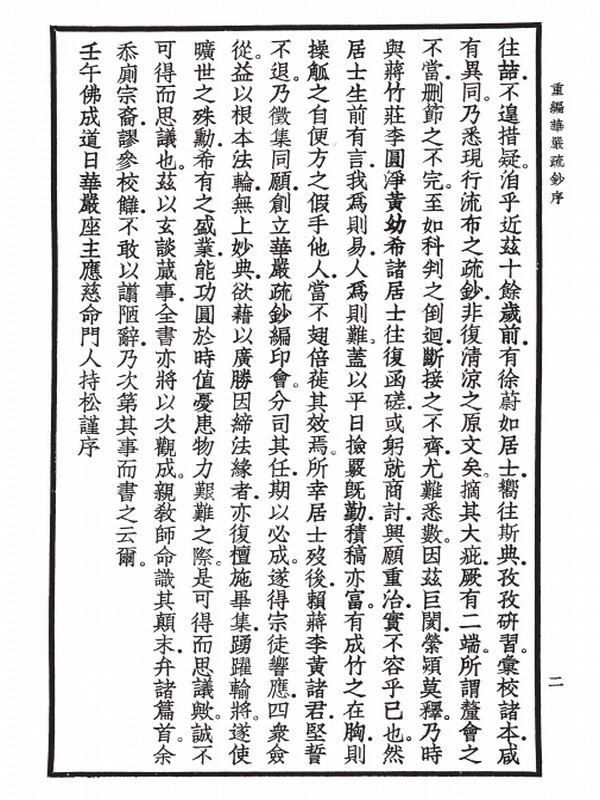 重編華嚴疏鈔序
二
往喆。不遑措疑。洎乎近茲十餘歲前。有徐蔚如居士。嚮往斯典。孜孜研習。彙校諸本。咸
有異同。乃悉現行流布之疏鈔。非復清涼之原文矣。摘其大疵。厥有二端。所謂釐會之
不當。刪節之不完。至如科判之倒迴。斷接之不齊。尤難悉數。因茲巨闅縈潁莫釋。乃時
與蔣竹莊李圓淨黃幼希諸居士往復函磋。或躬就商討。興願重治。實不容乎已也。然
居士生前有言。我爲則易。人爲則難。蓋以平日撿覈旣勤。積稿亦富。有成竹之在胸。則
操觚之自便。方之假手他人。當不翅倍蓰其效焉。所幸居士歿後。賴蔣李黃諸君。堅誓
不退。乃徵集同願。創立華嚴疏鈔編印會。分司其任。期以必成。遂得宗徒響應。四衆僉
從。益以根本法輪。無上妙典。欲藉以廣勝因締法緣者。亦復檀施畢集。踴躍輸將。遂使
曠世之殊勳。希有之盛業。能功圓於時值憂患物力艱難之際。是可得而思議歟。誠不
可得而思議也。茲以玄談蕆事。全書亦將以次觀成。親敎師命識其顛末。弁諸篇首。余
忝廁宗裔。謬參校讎。不敢以譾陋辭。乃次第其事而書之云爾。
壬午佛成道日華嚴座主應慈命門人持松謹序